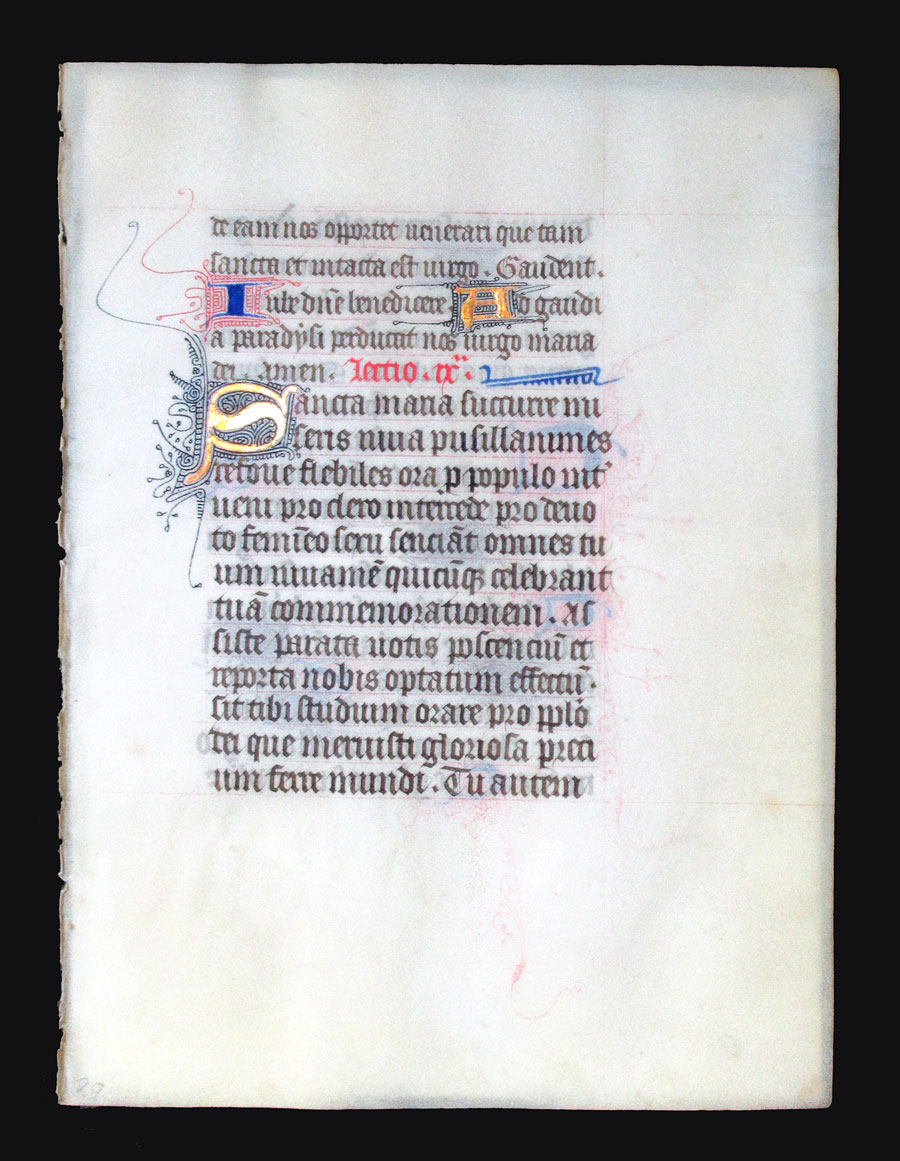 de eam nos oportet uenerari que tam
sancta et intacta est uirgo. Gaudent.
Iube dn̄e benedicere Ad gaudi
a paradysi perducat nos uirgo maria
dei. amen. Lectio. ixᵃ.
Sancta maria succurre mi
seris iuua pusillanimes
refoue flebiles ora ꝑ populo int̾
ueni pro clero intercede pro deuo
to femīeo sexu senciāt omnes tu
um iuuamē quicūqꝫ celebrant
tuā commemorationem. As
siste parata uotis poscenciū et
reporta nobis optatum effectū.
sit tibi studium orare pro pplō
dei que meruisti gloriosa preci
um ferre mundi. Tu autem
29